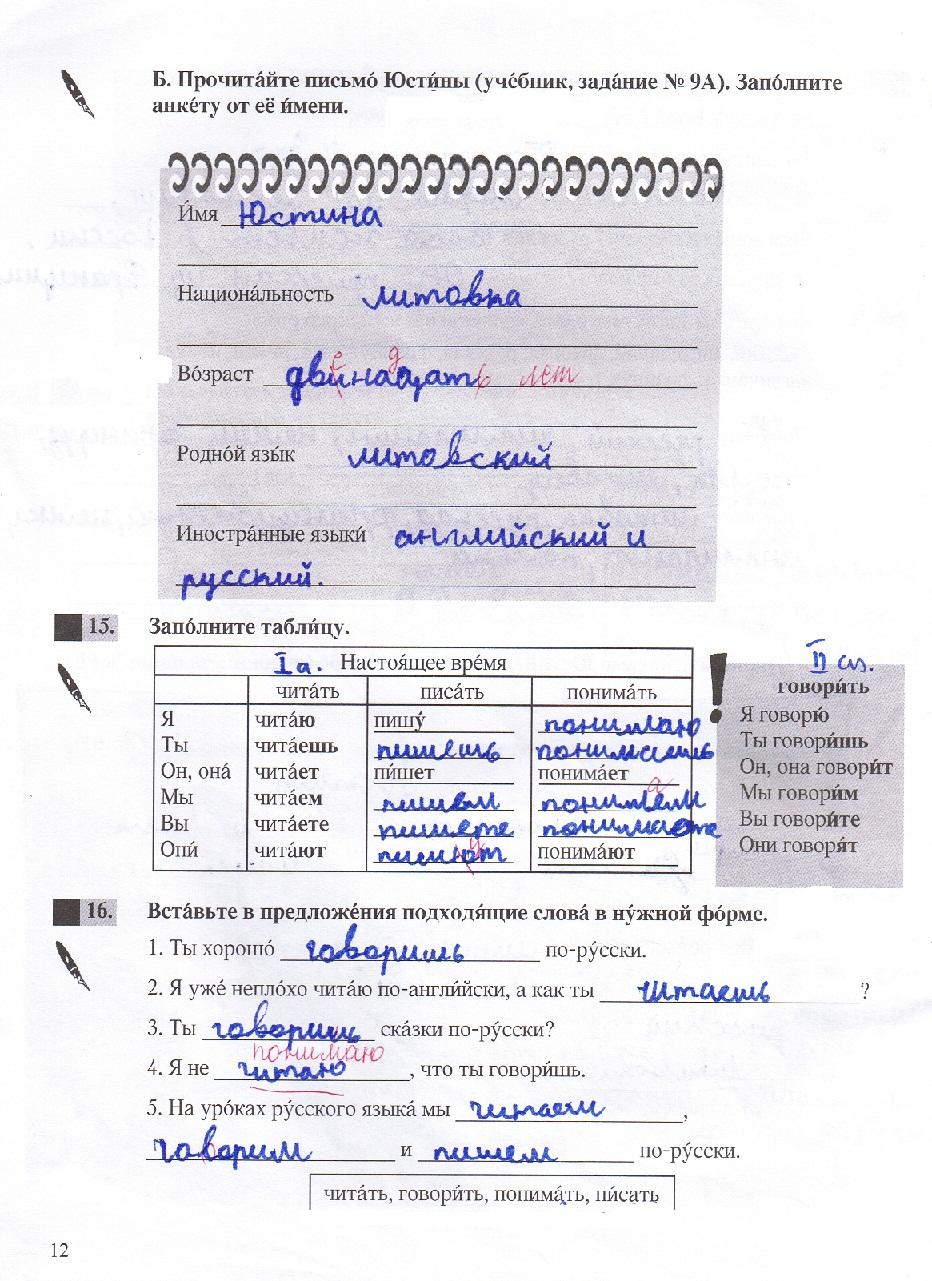 Б. Прочита́йте письмо́ Юсти́ны (уче́бник, зада́ние № 9А). Запо́лните
анке́ту от её и́мени.
И́мя Юстина
Национа́льность литовка
е д
Во́зраст двинацать лет
Родно́й язы́к литовский
Иностра́нные языки́ английский и
русский.
15. Запо́лните табли́цу.
Iа. Настоя́щее вре́мя
чита́ть писа́ть понима́ть
Я чита́ю пишу́ понимаю
Ты чита́ешь пишешь понимаешь
Он, она́ чита́ет пи́шет понима́ет
а
Мы чита́ем пишем понимем
Вы чита́ете пишете понимаете
Они́ чита́ют пишют понима́ют
у
II сп.
говори́ть
Я говорю́
Ты говори́шь
Он, она говори́т
Мы говори́м
Вы говори́те
Они говоря́т
16. Вста́вьте в предложе́ния подходя́щие слова́ в ну́жной фо́рме.
1. Ты хорошо́ говоришь по-ру́сски.
2. Я уже́ непло́хо чита́ю по-англи́йски, а как ты читаешь ?
3. Ты говоришь ска́зки по-ру́сски?
понимаю
4. Я не читаю , что ты говори́шь.
5. На уро́ках ру́сского языка́ мы читаем ,
говорим и пишем по-ру́сски.
чита́ть, говори́ть, понима́ть, пи́сать
12